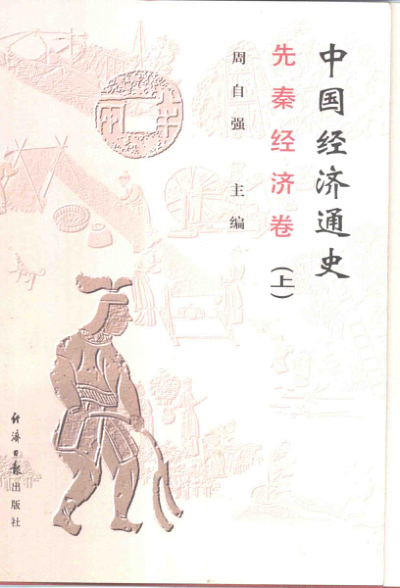 中国经济通史
先秦经济卷(上)
周自强 主编
半两
经济日报出版社